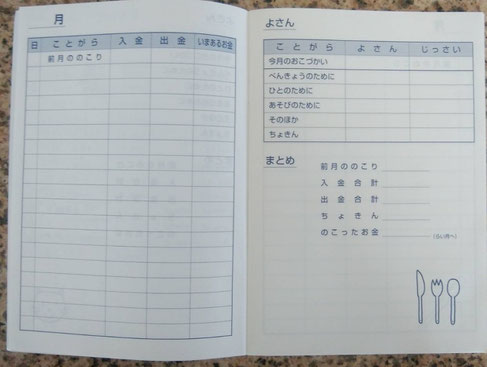 月
日 ことがら 入金 出金 いまあるお金
前月ののこり
よさん
ことがら よさん じっさい
今月のおこづかい
べんきょうのために
ひとのために
あそびのために
そのほか
ちょきん
まとめ
前月ののこり
入金合計
出金合計
ちょきん
のこったお金